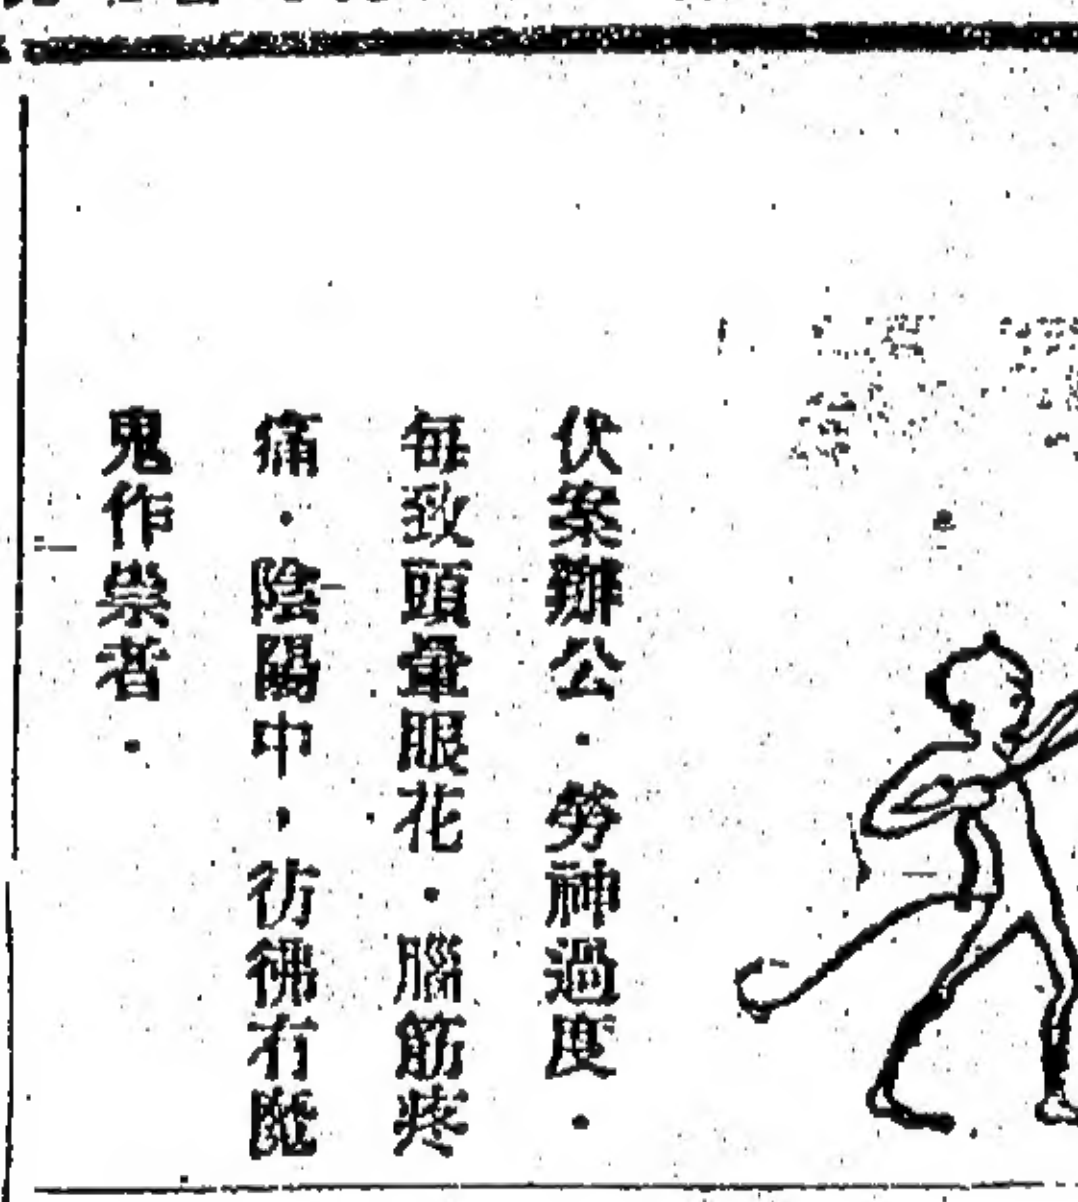 伏案辦公．勞神過度．
每致頭暈眼花．腦筋疼
痛．陰陽中，彷彿有魔
鬼作祟者．